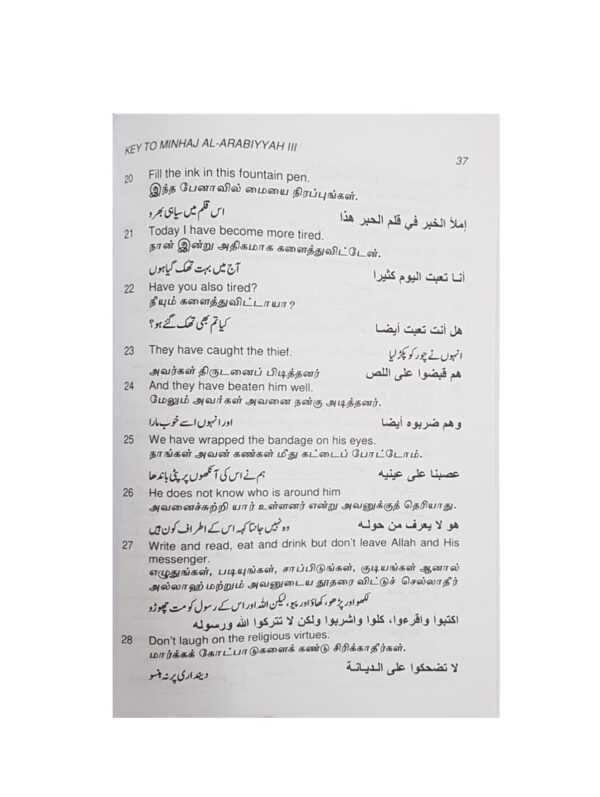 KEY TO MINHAJ AL-ARABIYYAH III
37
20 Fill the ink in this fountain pen.
இந்த பேனாவில் மையை நிரப்புங்கள்.
اس قلم میں سیاہی بھرو
إملأ الخبر في قلم الحبر هذا
21 Today I have become more tired.
நான் இன்று அதிகமாக களைத்துவிட்டேன்.
آج میں بہت تھک گیا ہوں
أنا تعبت اليوم كثيرا
22 Have you also tired?
நீயும் களைத்துவிட்டாயா?
کیا تم بھی تھک گئے ہو؟
هل أنت تعبت أيضا
23 They have caught the thief.
انہوں نے چور کو پکڑ لیا
அவர்கள் திருடனைப் பிடித்தனர்
هم قبضوا على اللص
24 And they have beaten him well.
மேலும் அவர்கள் அவனை நன்கு அடித்தனர்.
اور انہوں اسے خوب مارا
وهم ضربوه أيضا
25 We have wrapped the bandage on his eyes.
நாங்கள் அவன் கண்கள் மீது கட்டைப் போட்டோம்.
ہم نے اس کی آنکھوں پر پٹی باندھا
عصبنا على عينيه
26 He does not know who is around him
அவனைச்சுற்றி யார் உள்ளனர் என்று அவனுக்குத் தெரியாது.
وہ نہیں جانتا کہہ اس کے اطراف کون ہیں
هو لا يعرف من حوله
27 Write and read, eat and drink but don't leave Allah and His
messenger.
எழுதுங்கள், படியுங்கள், சாப்பிடுங்கள், குடியங்கள் ஆனால்
அல்லாஹ் மற்றும் அவனுடைய தூதரை விட்டுச் செல்லாதீர்
لکھو اور پڑھو، کھاؤ اور پیو، لیکن اللہ اور اس کے رسول کو مت چھوڑو
اكتبوا واقرءوا، كلوا واشربوا ولكن لا تتركوا الله ورسوله
28 Don't laugh on the religious virtues.
மார்க்கக் கோட்பாடுகளைக் கண்டு சிரிக்காதீர்கள்.
دینداری پر نہ ہنسو
لا تضحكوا على الديانة